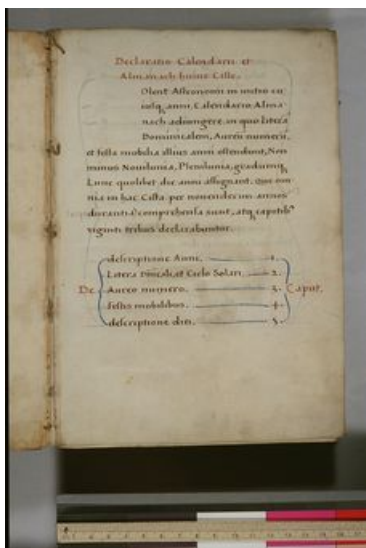 Declaratio Calendarii et
Almanach huius Cistę.
Olent Astronomi in initio cu
iusq; anni, Calendario Alma-
nach adiungere, in quo literã
Dominicalem, Aureũ numerũ,
et festa mobilia illius anni ostendunt, Nec
minus Nouilunia, Plenilunia, gradumq;
Lunę quolibet die anni assignant. Quę om
nia in hac Cista per nouendecim annos
durantia comprehensa sunt, atq; capitib9
viginti tribus declarabuntur.
descriptione Anni. 1.
Litera Dñicali, et Ciclo Solari. 2.
De Aureo numero. 3. Caput.
festis mobilibus. 4.
descriptione diei. 5.